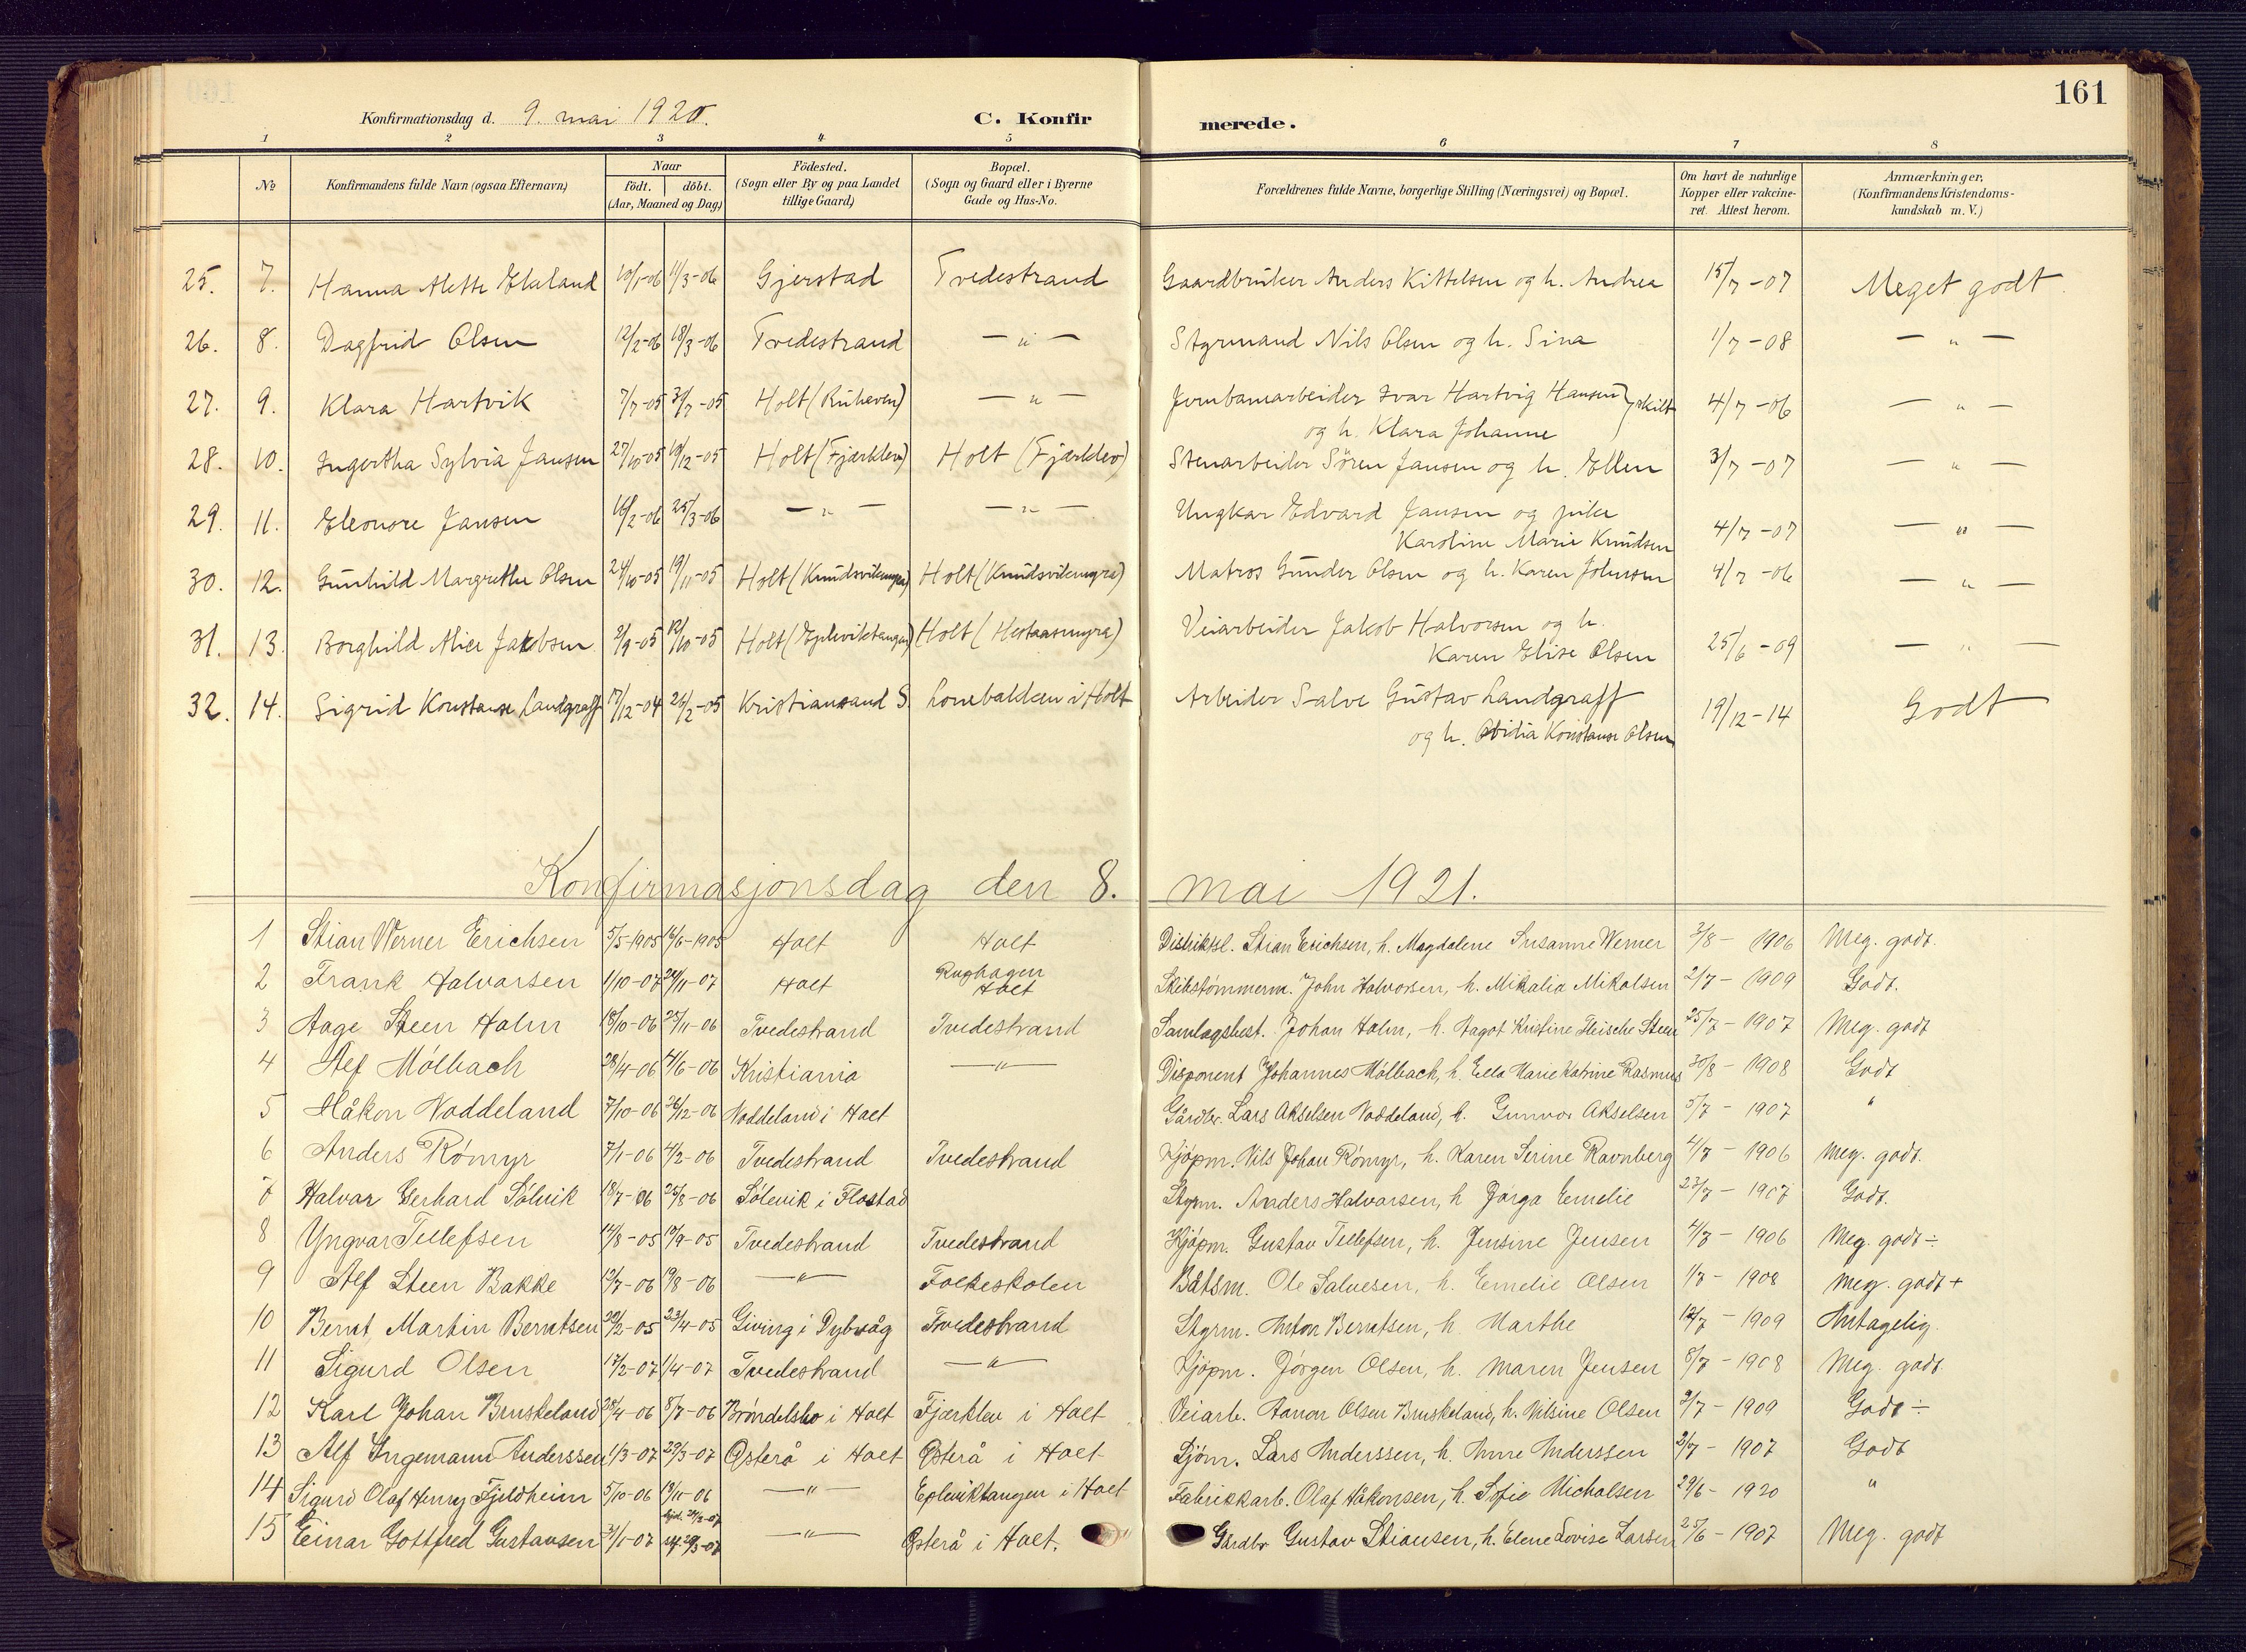 161
Konfirmationsdag d. 9. mai 1920. C. Konfirmerede.
1 2 3 4 5 6 7 8
№ Konfirmandens fulde Navn (ogsaa Efternavn) Naar födt. döbt. (Aar, Maaned og Dag) Födested. (Sogn eller By og paa Landet tillige Gaard) Bopæl. (Sogn og Gaard eller i Byerne Gade og Hus-No. Forældrenes fulde Navne, borgerlige Stilling (Næringsvei) og Bopæl. Om havt de naturlige Kopper eller vakcineret. Attest herom. Anmærkninger. (Konfirmandens Kristendomskundskab m. V.)
25. 7. Hanna Alette 10/1-06 11/3-06 Gjerstad Tvedestrand Gaardbruker Anders Kittelsen og h. Andrea 15/7-07 Meget godt.
26. 8. Dagfrid Olsen 12/2-06 18/3-06 Tvedestrand — " — Styrmand Nils Olsen og h. Sina 1/7-08 — " —
27. 9. Klara Hartvik 7/7-05 31/7-05 Holt — " — Jernbanearbeider Ivar Hartvig Hansen } skilt 4/7-06 — " —
og h. Klara Johanne
28. 10. Ingertha Sylvia Jansen 27/10-05 10/12-05 Holt (Fjærklev) Holt (Fjærklev) Stenarbeider Sören Jansen og h. Ellen 3/7-07 — " —
29. 11. Eleonore Jansen 16/2-06 25/3-06 — " — — " — Ungkar Edvard Jansen og pike
Karoline Marie Knudsen 4/7-07 — " —
30. 12. Gunhild Margrethe Olsen 24/10-05 19/11-05 Holt (Knudsvikmyra) Holt (Knudsvikmyra) Matros Gunder Olsen og h. Karen Johnsen 4/7-06 — " —
31. 13. Borghild Alice Jakobsen 2/9-05 12/10-05 Holt (Epleviktangen) Holt (Hestaasmyra) Veiarbeider Jakob Halvorsen og h.
Karen Elise Olsen 25/6-09 — " —
32. 14. Sigrid Konstanse Landgraff 17/12-04 26/2-05 Kristiansand S Lonebakken i Holt Arbeider Salve Gustav Landgraff
og h. Konstanse Olsen 19/12-14 Godt
Konfirmasjonsdag den 8. mai 1921.
1 Stian Werner Erichsen 5/5-1905 16/6-1905 Holt Holt Distriktsl. Stian Erichsen, h. Magdalene Susanne Werner 3/8-1906 Meg. godt.
2 Frank Halvorsen 1/10-07 24/11-07 Holt Rughagen Holt Skibstømmerm. John Halvorsen, h. Mikalia Mikalsen 2/7-1909 Godt.
3 Aage Steen Holm 18/10-06 25/11-06 Tvedestrand Tvedestrand Samlagsbest. Johan Holm, h. Dagot Kristine Fleische Steen 25/7-1907 Meg. godt
4 Alf Mólbach 28/4-06 4/6-06 Kristiania — " — Disponent Johannes Mólbach, h. Ella Marie Katrine Rasmus 30/8-1908 Godt
5 Håkon Noddeland 7/10-06 26/12-06 Noddeland i Holt Gårdbr. Lars Akselsen Noddeland, h. Gunvor Akselsen 5/7-1907 "
6 Anders Rómyr 7/1-06 4/2-06 Tvedestrand Tvedestrand Kjópm. Nils Johan Rómyr, h. Karen Serine Ravnberg 4/7-1906 Meg. godt.
7 Halvor Gerhard Sólvik 18/7-06 26/8-06 Sólevik i Flostad Styrm. Anders Halvorsen, h Jórga Emelie 23/7-1907 Godt.
8 Yngvar Tellefsen 14/8-05 17/9-05 Tvedestrand Tvedestrand Kjópm. Gustav Tellefsen, h. Jensine Jensen 4/7-1906 Meg. godt ÷
9 Alf Steen Bakke 12/7-06 19/8-06 — " — Folkeskolen Båtsm. Ole Salvesen, h. Emelie Olsen 1/7-1908 Meg. godt +
10 Bernt Martin Berntsen 20/2-05 23/4-05 Giving i Dybvåg Tvedestrand Styrm. Anton Berntsen, h. Marthe 12/7-1909 Antagelig.
11 Sigurd Olsen 17/2-07 1/4-07 Tvedestrand — " — Kjópm. Jórgen Olsen, h. Maren Jensen 8/7-1908 Meg. godt
12 Karl Johan Bruskeland 28/4-06 8/7-06 Bróndelsbo i Holt Fjærklev i Holt Veiarb. Aanon Olsen Bruskeland, h. Nilsine Olsen 2/7-1909 Godt ÷
13 Alf Ingemann Anderssen 1/3-07 29/3-07 Østerå i Holt Østerå i Holt Sjóm. Lars Anderssen, h. Anne Anderssen 2/7-1907 Godt
14 Sigurd Olaf Henry Fjeldheim 5/10-06 18/11-06 — " — Epleviktangen i Holt Fabrikkarb. Olaf Håkonsen, h. Sofie Nicholsen 29/6-1920 "
15 Einar Gottfred Gustavsen 31/1-07 29/3-07 — " — Østerå i Holt. Gårdbr Gustav Stiansen, h. Elene Lovise Larsen 25/6-1907 Meg. godt